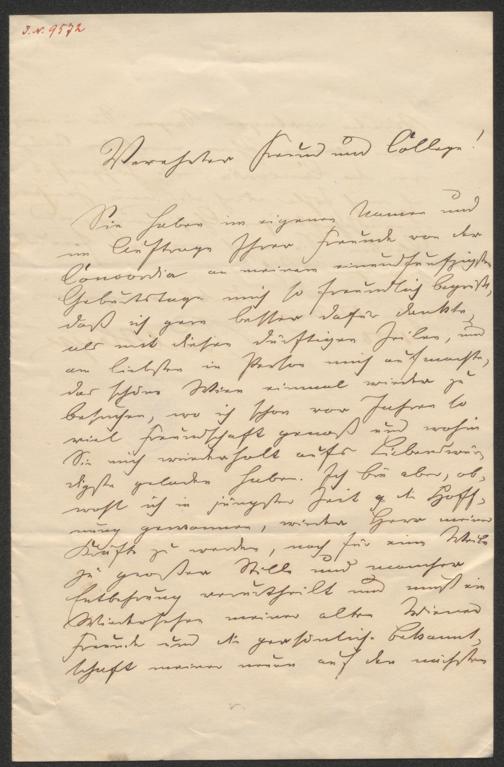 J. N. 9572
Verehrter Freund und College!
Sie haben im eigenen Namen und
im Auftrage Ihrer Freunde von der
Concordia an meinem einundfünfzigsten
Geburtstage mich so freundlich begrüßt,
daß ich gern besser dafür dankte,
als mit diesen dürftigen Zeilen, und
am liebsten in Person mich aufmachte,
das schöne Wien einmal wieder zu
besuchen, wo ich schon vor Jahren so
viel Freundschaft genoß und wohin
Sie mich wiederholt aufs Liebenswür-
digste geladen haben. Ich bin aber, ob-
wohl ich in jüngster Zeit die Hoff-
nung gewonnen, wieder Herr meiner
Kräfte zu werden, noch für eine Weile
zu großer Stille und mancher
Entbehrung verurtheilt und muß ein
Wiedersehen meiner alten Wiener
Freunde und die persönliche Bekannt-
schaft meiner neuen auf den nächsten